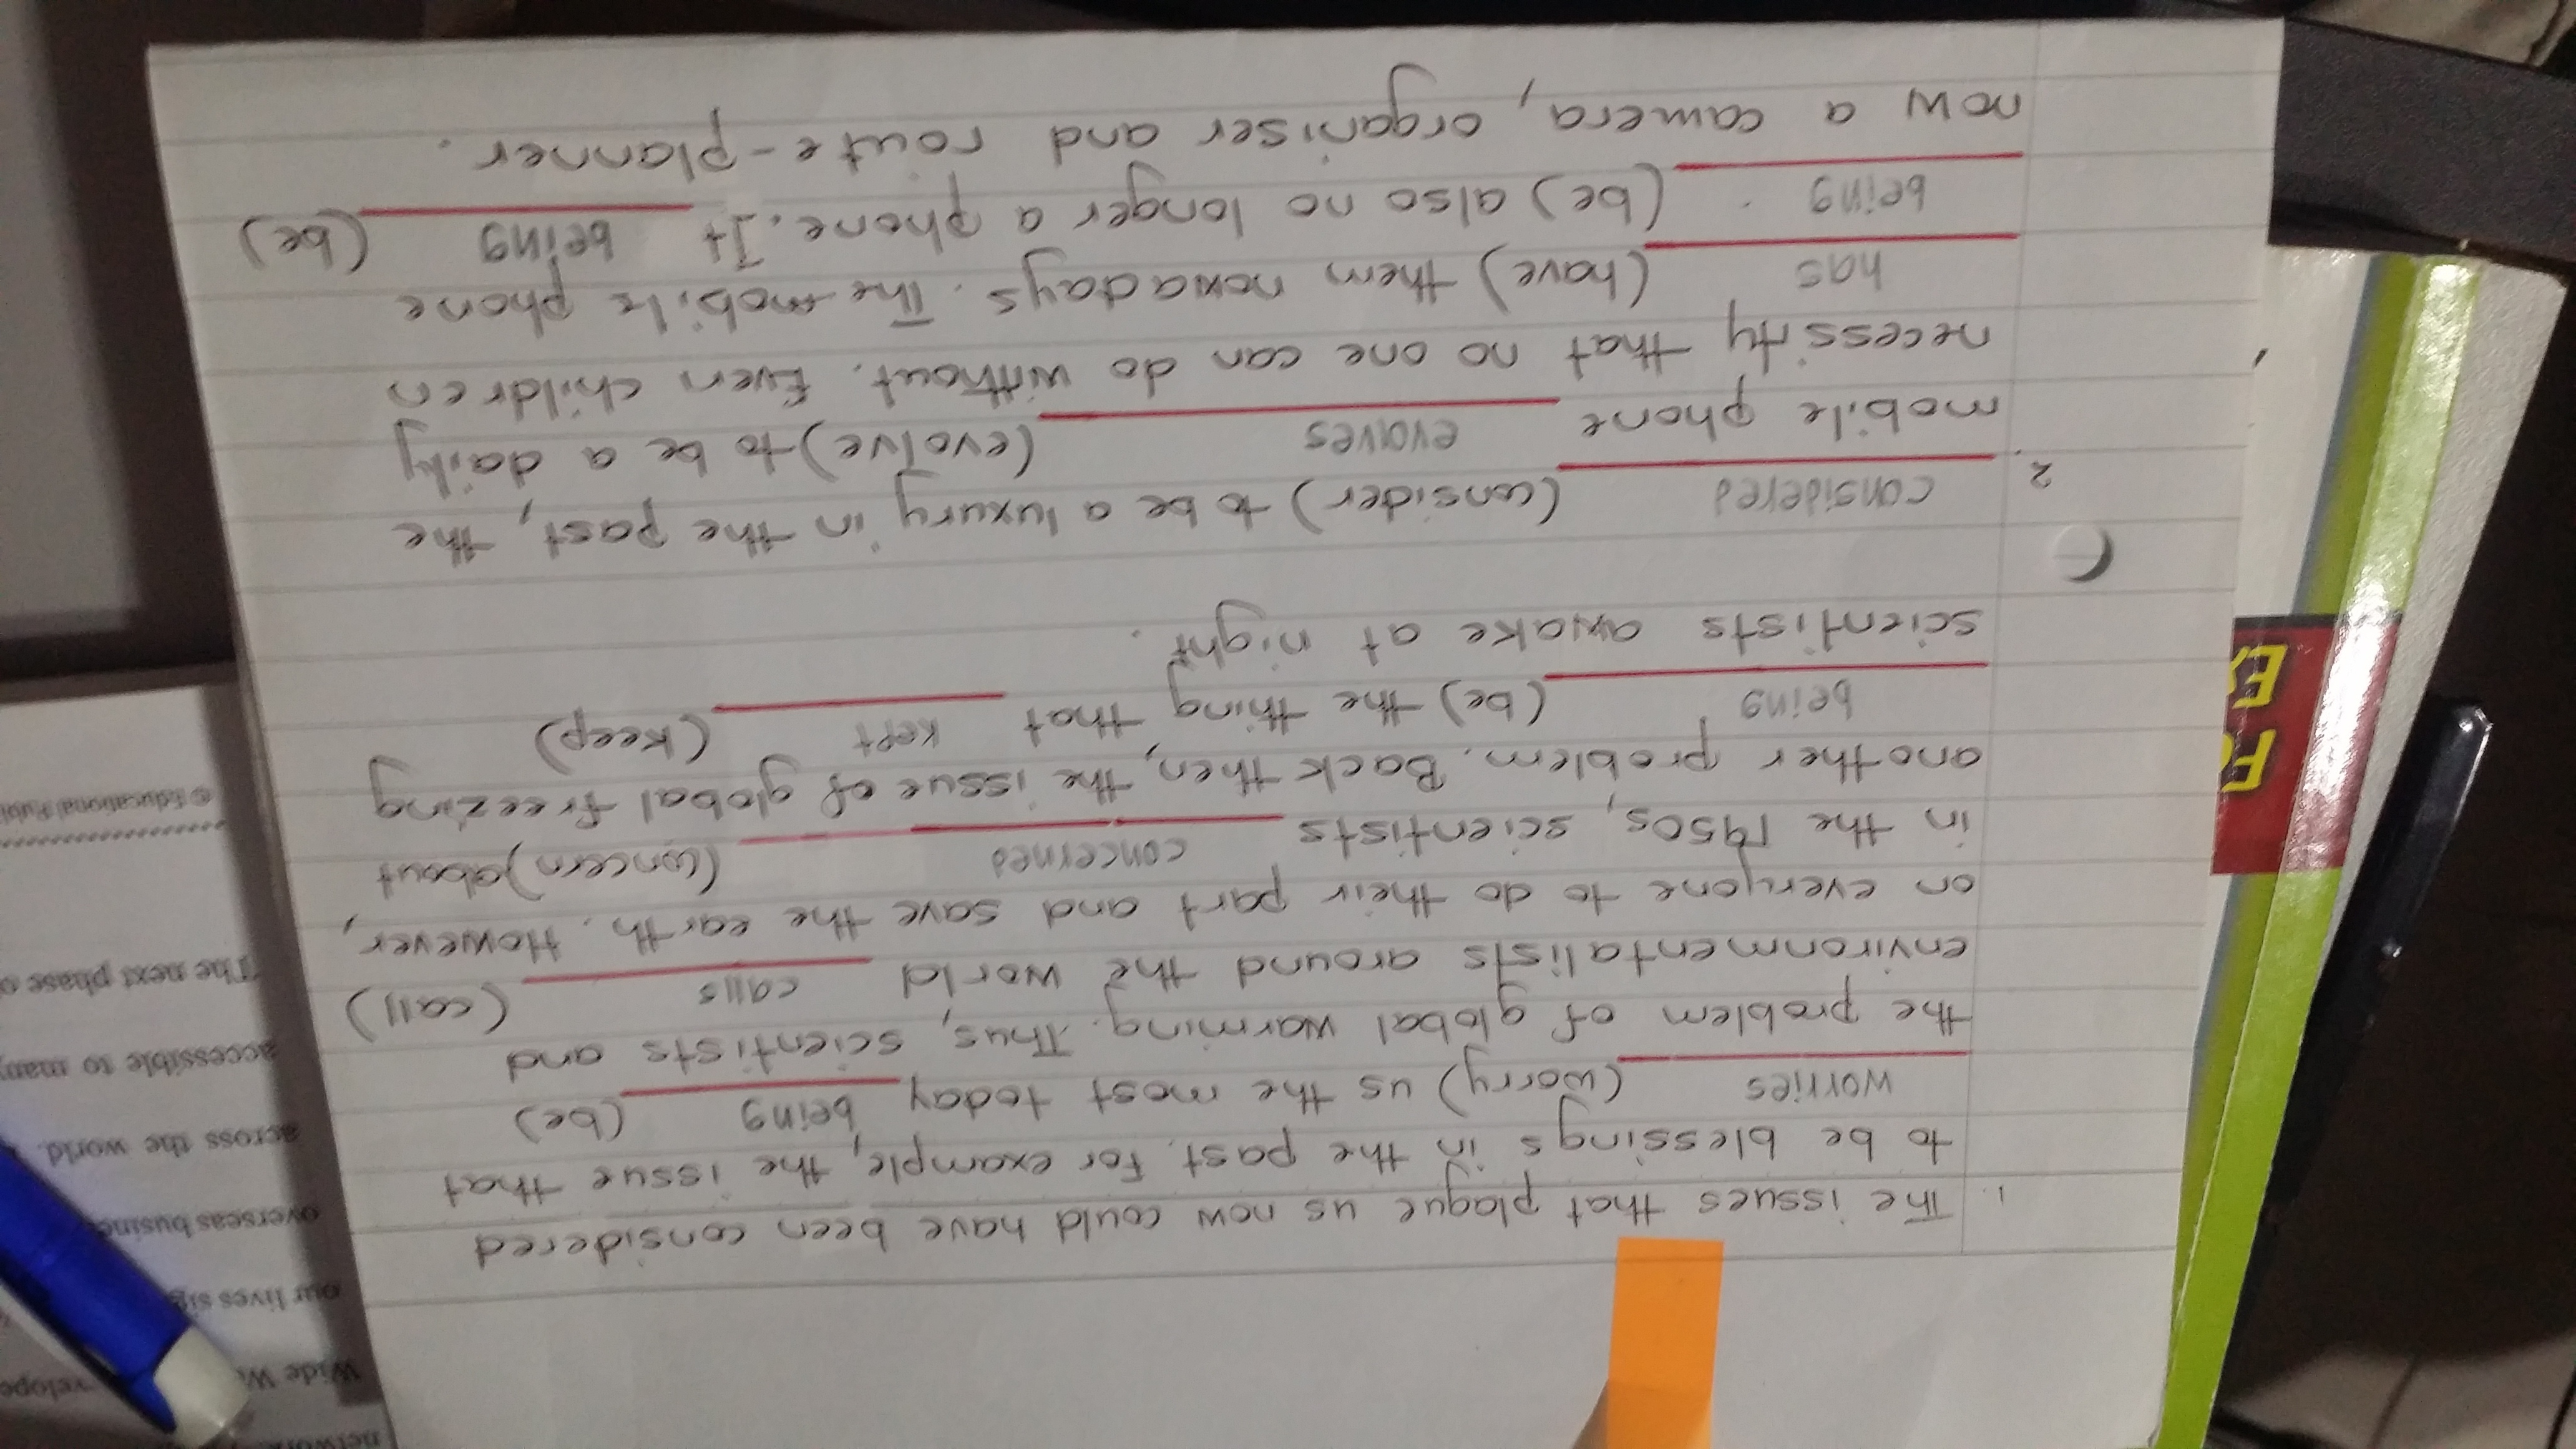 1. The issues that plague us now could have been considered
to be blessings in the past. For example, the issue that
worries (worry) us the most today being (be)
the problem of global warming. Thus, scientists and
environmentalists around the world calls (call)
on everyone to do their part and save the earth. However,
in the 1950s, scientists concerned (concern) about
another problem. Back then, the issue of global freezing
being (be) the thing that kept (keep)
scientists awake at night.
2. considered (consider) to be a luxury in the past, the
mobile phone evolves (evolve) to be a daily
necessity that no one can do without. Even children
has (have) them nowadays. The mobile phone
being (be) also no longer a phone. It being (be)
now a camera, organiser and route-planner.
network
Wide W
velope
our lives sig
overseas busine
across the world.
accessible to many
The next phase o
© Educational Publi